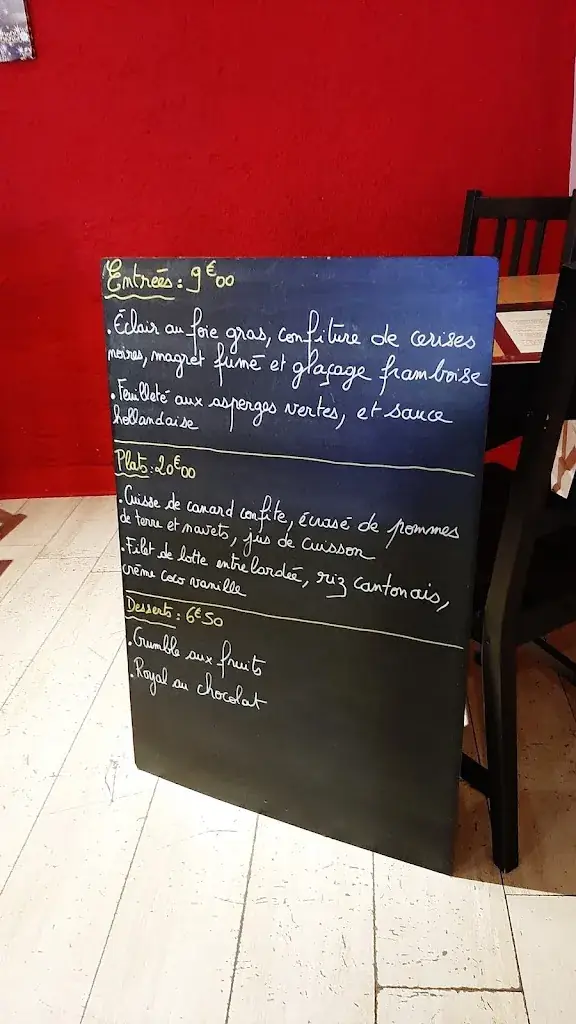 Entrées : 9€00
. Éclair au foie gras, confiture de cerises
noires, magret fumé et glaçage framboise
. Feuilleté aux asperges vertes, et sauce
hollandaise
Plats : 20€00
. Cuisse de canard confite, écrasé de pommes
de terre et navets, jus de cuisson
. Filet de lotte entrelardée, riz cantonais,
crème coco vanille
Desserts : 6€50
. Crumble aux fruits
. Royal au chocolat